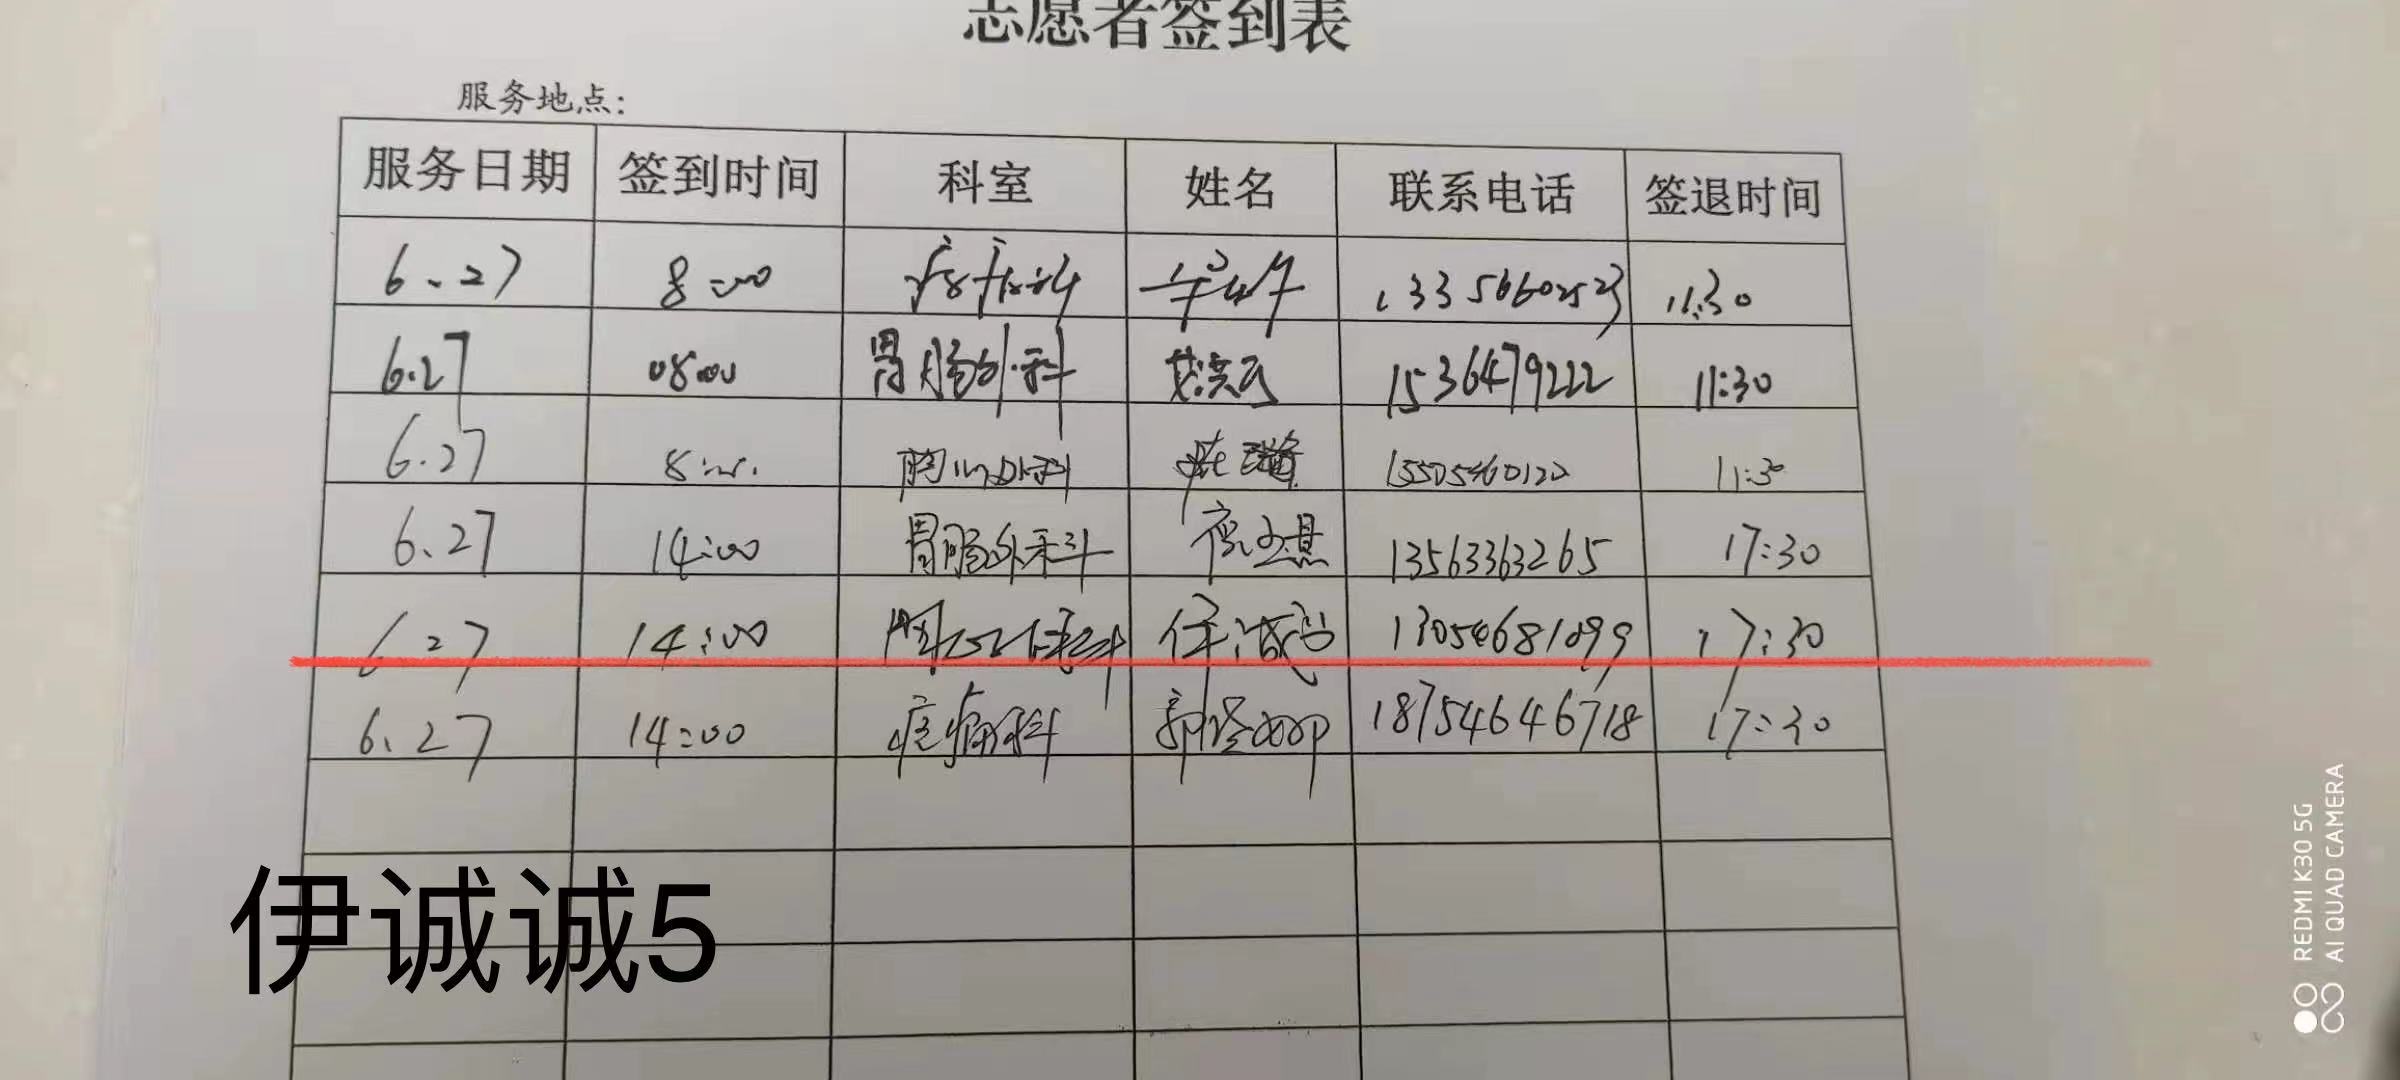 志愿者签到表
服务地点：
服务日期 签到时间 科室 姓名 联系电话 签退时间
6.27 8:00 11:30
6.27 08:00 胃肠外科 1536479222 11:30
6.27 胸心外科 15505460122 11:30
6.27 14:00 胃肠外科 13563363265 17:30
6.27 14:00 伊诚诚 13054681099 17:30
6.27 14:00 18754646718 17:30
伊诚诚5
REDMI K30 5G
AI QUAD CAMERA